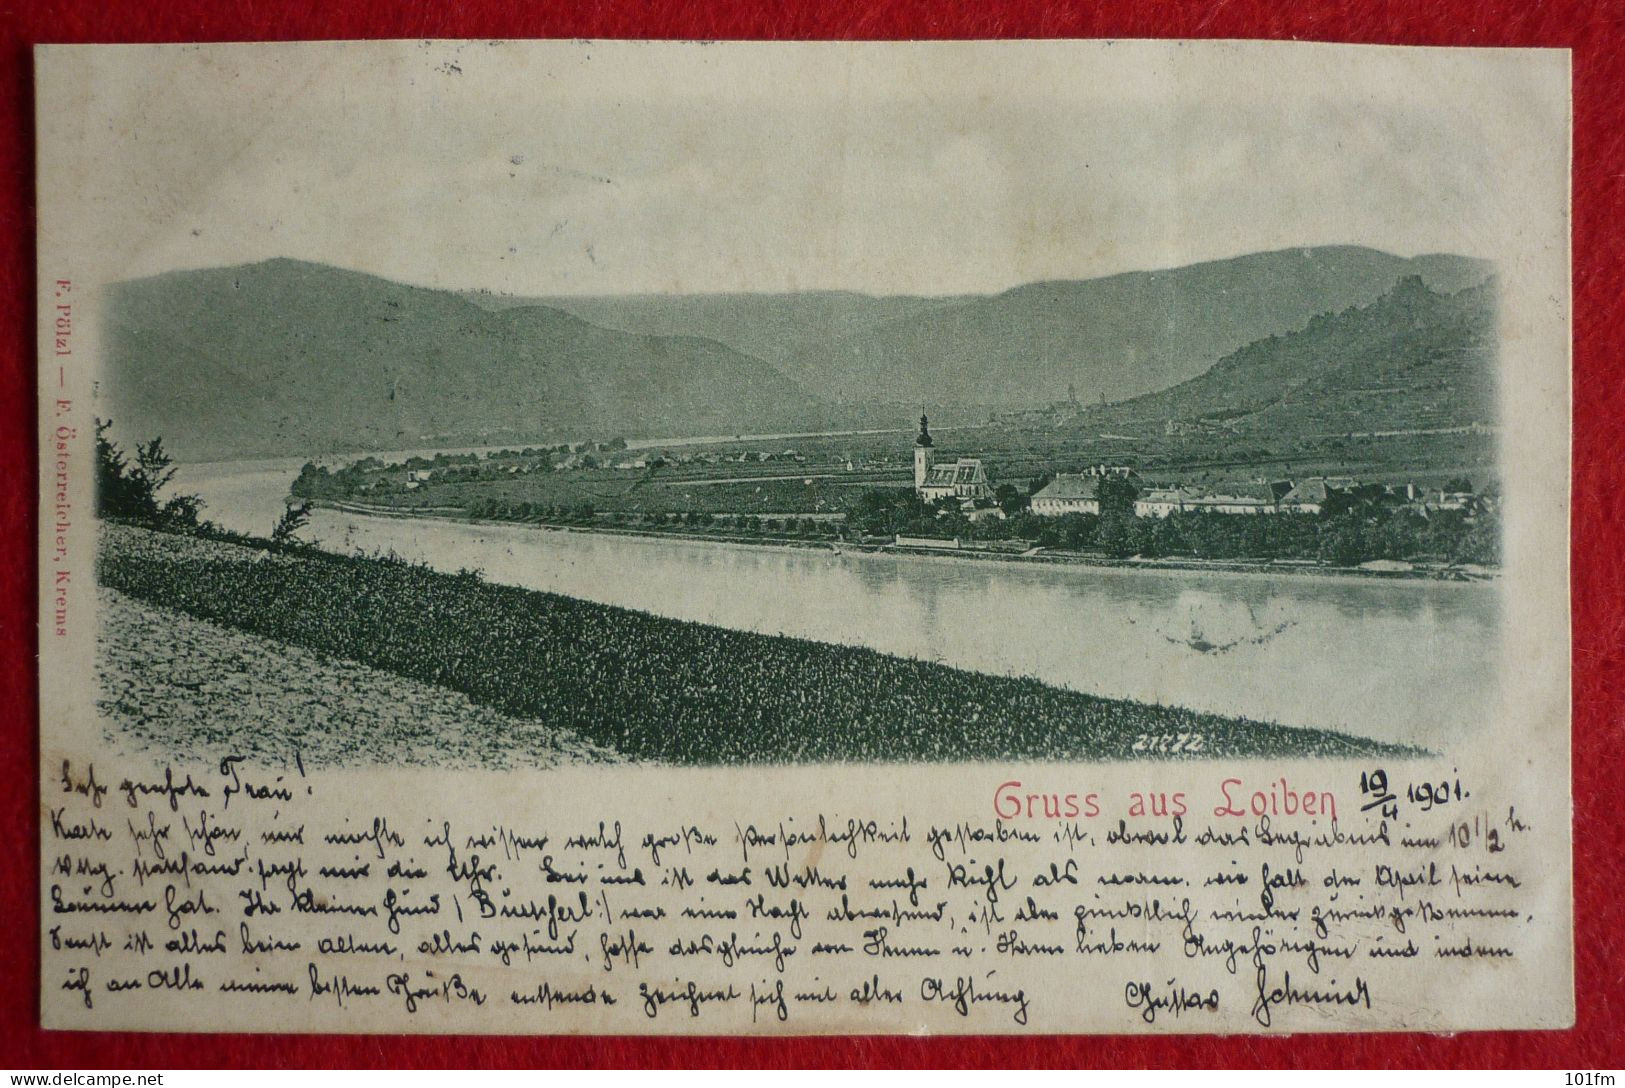 F. Pölzl — F. Österreicher, Krems
21772
Gruss aus Loiben 19/4 1901.
Sehr geehrte Frau!
Karte sehr schön, nur möchte ich wissen welch große Persönlichkeit gestorben ist, obwol das Begräbnis um 10 1/2 h.
stattfand. sagt mir die Uhr. Bei uns ist das Wetter mehr kühl als warm. wie halt der April seine
Launen hat. Ihr kleiner Hund /: Burscherl :/ war eine Nacht abwesend, ist aber pünktlich wieder zurückgekommen.
Sonst ist alles beim alten, alles gesund, hoffe dasgleiche von Ihnen u. Ihren lieben Angehörigen und indem
ich an Alle meine besten Grüße entsende zeichnet sich mit aller Achtung Gustav Schmidt
101fm